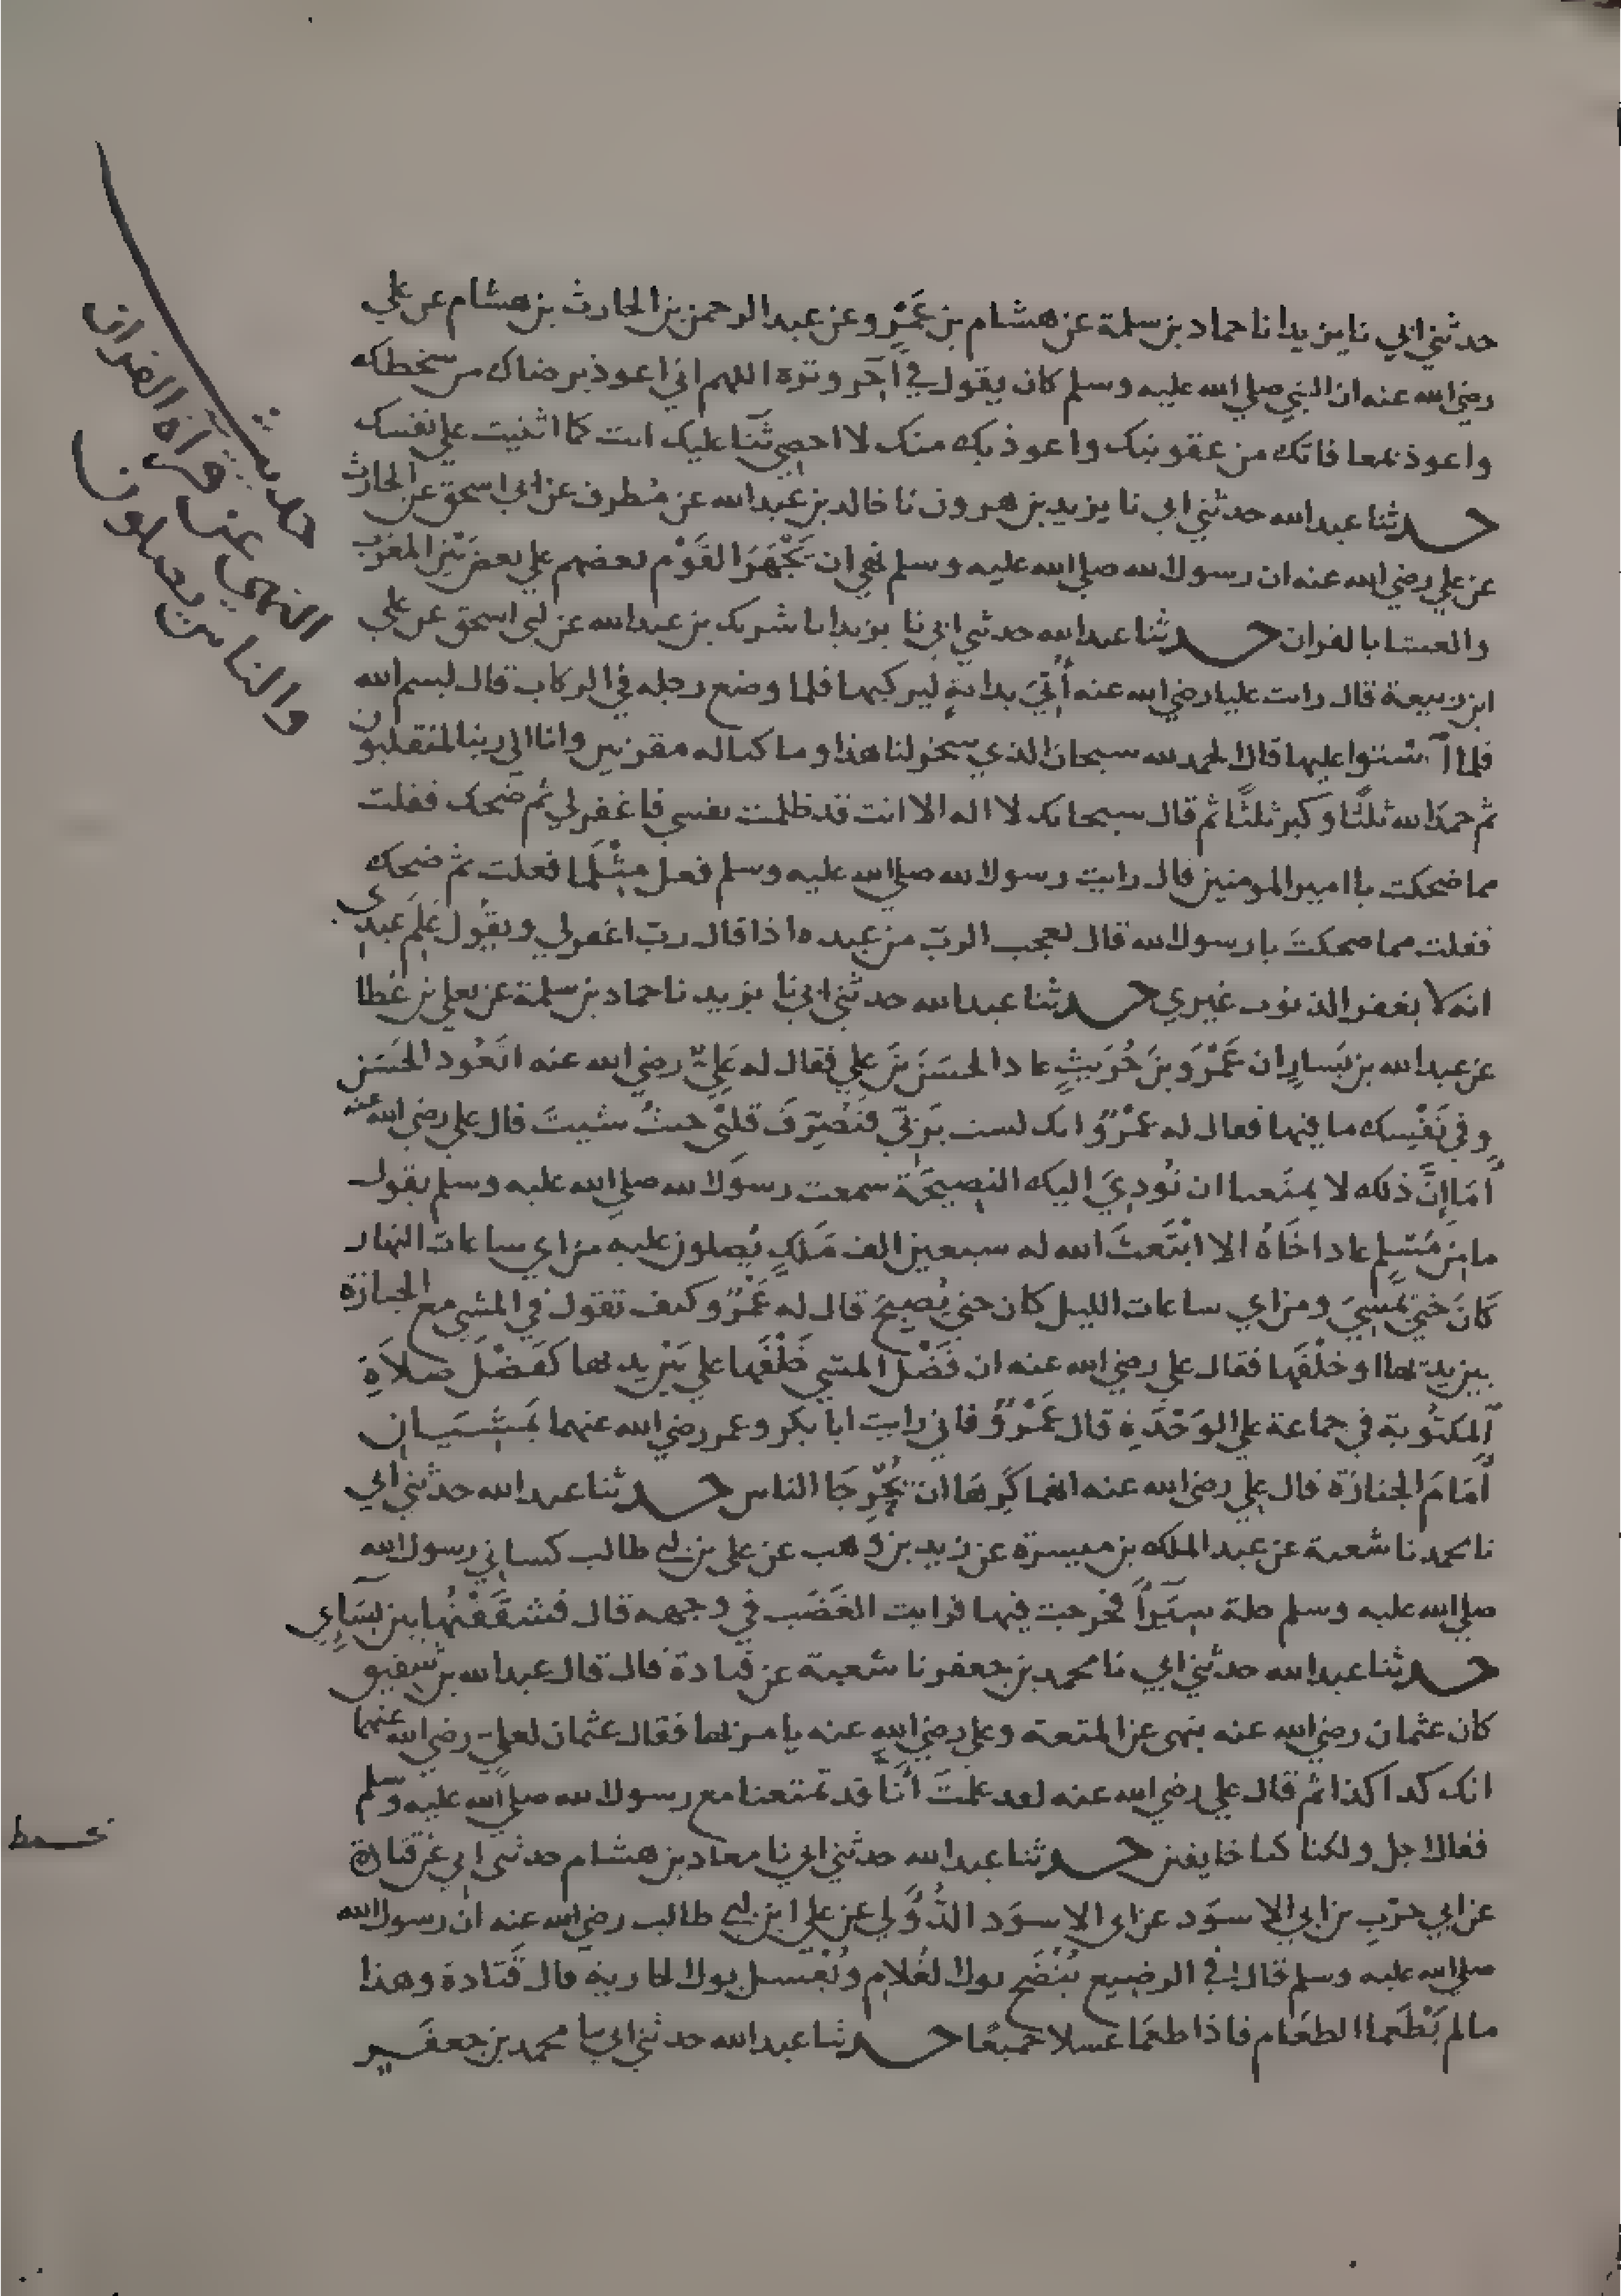 حدثني ابي نا يزيد انا حماد بن سلمة عن هشام بن عَمْرٍو عن عبد الرحمن بن الحارث بن هشام عن علي
رضي الله عنه ان النبي صلي الله عليه وسلم كان يقول في آخر وتره اللهم اني اعوذ برضاك من سخطك
واعوذ بمعافاتك من عقوبتك واعوذ بك منك لا احصي ثنا عليك انت كما اثنيت علي نفسك
حدثنا عبد الله حدثني ابي نا يزيد بن هرون نا خالد بن عبد الله عن مُطرف عن ابي اسحق عن الحارث
عن علي رضي الله عنه ان رسول الله صلي الله عليه وسلم نهي ان يَجْهَرَ القَوْم بعضهم علي بعض بَيْنَ المغرب
والعشا بالقران حدثنا عبد الله حدثني ابي نا يزيد انا شريك بن عبد الله عن ابي اسحق عن علي
ابن ربيعة قال رايت عليا رضي الله عنه أُتِيَ بدابةٍ ليركبها فلما وضع رجله في الركاب قال بسم الله
فلما استوا عليها قال الحمد لله سبحان الذي سخر لنا هذا وما كنا له مقرنين وانا الي ربنا لمنقلبون
ثم حمد الله ثلثًا وكبر ثلثًا ثم قال سبحانك لا اله الا انت قد ظلمت نفسي فاغفر لي ثم ضحك فقلت
مما ضحكت يا امير المومنين قال رايت رسول الله صلي الله عليه وسلم فعل مِثْلَما فعلت ثم ضحك
فقلت مما ضحكتَ يا رسول الله قال يعجب الربّ من عبده اذا قال ربّ اغفر لي ويقُول عَلِمَ عبدي
انه لا يغفر الذنوب غيري حدثنا عبد الله حدثني ابي نا يزيد نا حماد بن سلمة عن يعلي بن عَطا
عن عبد الله بن يَسارٍ ان عَمْرَو بنَ حُرَيثٍ عاد الحسَنَ بنَ علي فقال له عَليٌّ رضي الله عنه اتَعُود الحَسَن
وفي نَفْسِك ما فيها فقال له عَمْرٌو انك لست بَرَبّي فتُصَرّفَ قلبْي حيثُ شيتَ قال علي رضي الله عنه
أَمَا إِنَّ ذلك لا يمنَعنا ان نُودِيَ اليك النصِيحَة سمعت رسولَ الله صلي الله عليه وسلم يقول
ما مِنْ مُسْلِم عاد اخَاهُ الا ابْتَعثَ الله له سبعين الف مَلَكٍ يُصلون عليه من اي ساعات النهار
كَانَ حتي يمُسِيَ ومن اي ساعات الليل كان حتي يُصبِحَ قال له عَمْرٌو كيف تقول في المشي مع الجنازة
بين يديها او خلْفَها فقال علي رضي الله عنه ان فَضْلَ المشي خَلْفَها علي بَيْن يديها كفَضْل صلاَةِ
المكتُوبة في جماعة علي الوَحْدَةِ قال عَمْرٌو فاني رايت ابا بكر وعمر رضي الله عنهما يَمشِيَانِ
أَمَامَ الجنازة قال علي رضي الله عنه انهما كَرِهَا ان يُحْرِجَا الناس حدثنا عبد الله حدثني ابي
نا محمد نا شعبة عن عبد الملك بن ميسرة عن زيد بن وهب عن علي بن ابي طالب كساني رسول الله
صلي الله عليه وسلم حلة سِيَرآ فخرجت فيها فرايت الغَضَب في وجهه قال فشقَقْتُها بين نِسَآيِي
حدثنا عبد الله حدثني ابي نا محمد بن جعفر نا شعبة عن قتادة قال قال عبد الله بن شقيق
كان عثمان رضي الله عنه ينهي عن المتعة وعلي رضي الله عنه يامر بها فقال عثمان لعلي رضي الله عنهما
انك كذا كذا ثم قال علي رضي الله عنه لقد علمتَ أنا قد تمتعنا مع رسول الله صلي الله عليه وسلم
فقال اجل ولكنا كنا خايفين حدثنا عبد الله حدثني ابي نا معاذ بن هشام حدثني ابي عن قتادة
عن ابي حَرْبِ بن ابي الاسوَد عن ابي الاسوَد الدُّؤَلي عن علي ابن ابي طالب رضي الله عنه ان رسول الله
صلي الله عليه وسلم قال في الرضيع يُنْضَحُ بول الغُلام ويُغْسل بول الجارية قال قَتادة وهذا
ما لم يَطْعَما الطعَام فاذا طعما غسلا جميعًا حدثنا عبد الله حدثني ابي نا محمد بن جعفَر
حديث
النهي عن قرآة القران
والناس يصلون